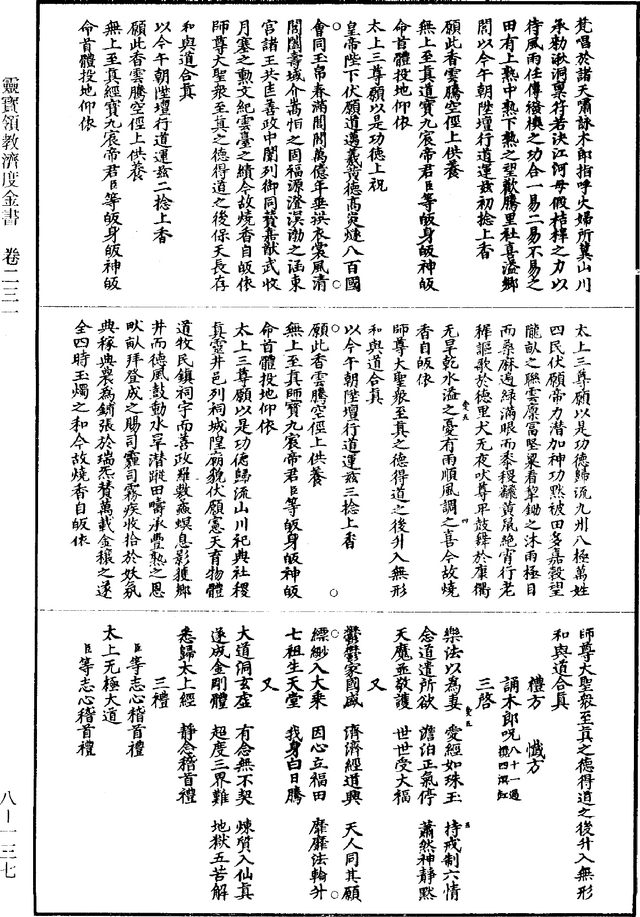 靈寶領教濟度金書　卷二三一
八-一三七
梵唱於諸天嘯詠木郎指呼火婦所冀山川
承勑湫洞稟行若決江河毋假桔槔之力以
待風雨任傳橃櫕之功合一易二易不易之
田有上熟中熟下熟之望歡騰里社喜溢鄉
閭以今午朝陞壇行道運玆初捻上香
願此香雲騰空徑上供養
無上至真道寶九宸帝君臣等皈身皈神皈
命首體投地仰依
太上三尊願以是功德上祝
皇帝陛下伏願道邁羲黃德高爕燧八百國
會同玉帛春滿閶闔萬億年垂拱衣裳風清
閬闠壽域介嵩怕之固福源澄溟渤之涵東
宮諸王共庄善政中闈列御同贊嘉猷武收
月塞之勳文紀雲臺之績今故燒香自皈依
師尊大聖衆至真之德得道之後保天長存
和與道合真
以今午朝陞壇行道運玆二捻上香
願此香雲騰空徑上供養
無上至真經寶九宸帝君臣等皈身皈神皈
命首體投地仰依
太上三尊願以是功德歸流九州八極萬姓
四民伏願帝力潛加神功黙被田多嘉穀望
隴畝之聯雲廪富堅粱看犂鋤之沐雨極目
而桑麻遍綠滿眼而黍稷虧黃鼠絶宵行老
稺謳歌於德里犬无夜吠尊卑鼓舞於康衢
无旱乾水溢之憂有雨順風調之喜今故燒
香自皈依
師尊大聖衆至真之德得道之後升入無形
和與道合真
以今午朝陞壇行道運玆三捻上香
願此香雲騰空徑上供養
無上至真師寶九宸帝君臣等皈身皈神皈
命首體投地仰依
太上三尊願以是功德歸流山川祀典社稷
真靈井邑列祠城隍廟貌伏願憲天育物體
道牧民鎮祠宇而善政羅敷蝥螟息影獲鄉
井而德風鼓動水旱潛蹤田疇承豐熟之恩
畎畝拜登成之賜司霾司霧疾收拾於妖氛
典稼典農為鋪張於瑞炁贊萬載金穰之遂
全四時玉燭之和今故燒香自皈依
師尊大聖衆至真之德得道之後升入無形
和與道合真
禮方　懺方
誦木郎呪八十一過
三啓
樂法以為妻　愛經如珠玉　持戒制六情
念道遣所欲　澹泊正氣停　蕭然神靜黙
天魔並敬護　世世受大福
又
鬱鬱家國盛　濟濟經道興　天人同其願
縹緲入大乘　因心立福田　靡靡法輪升
七祖生天堂　我身白日騰
又
大道洞玄虛　有念無不契　煉質入仙真
遂成金剛體　超度三界難　地獄五苦解
悉歸太上經　靜念稽首禮
三禮
臣等志心稽首禮
太上无極大道
臣等志心稽首禮